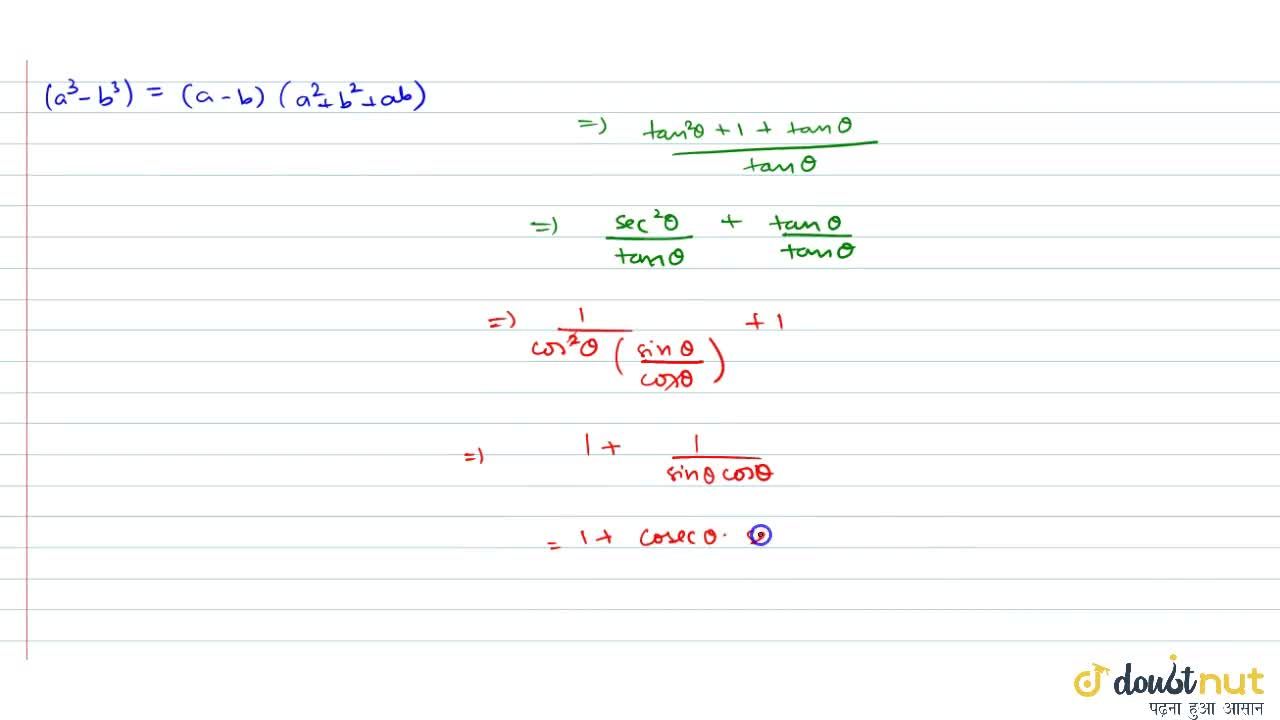 (a³ - b³) = (a - b) (a² + b² + ab)
=> tan²θ + 1 + tanθ / tanθ
=> sec²θ / tanθ + tanθ / tanθ
=> 1 / cos²θ (sinθ / cosθ) + 1
=> 1 + 1 / sinθ cosθ
= 1 + cosecθ · s
doubtnut
पढ़ना हुआ आसान